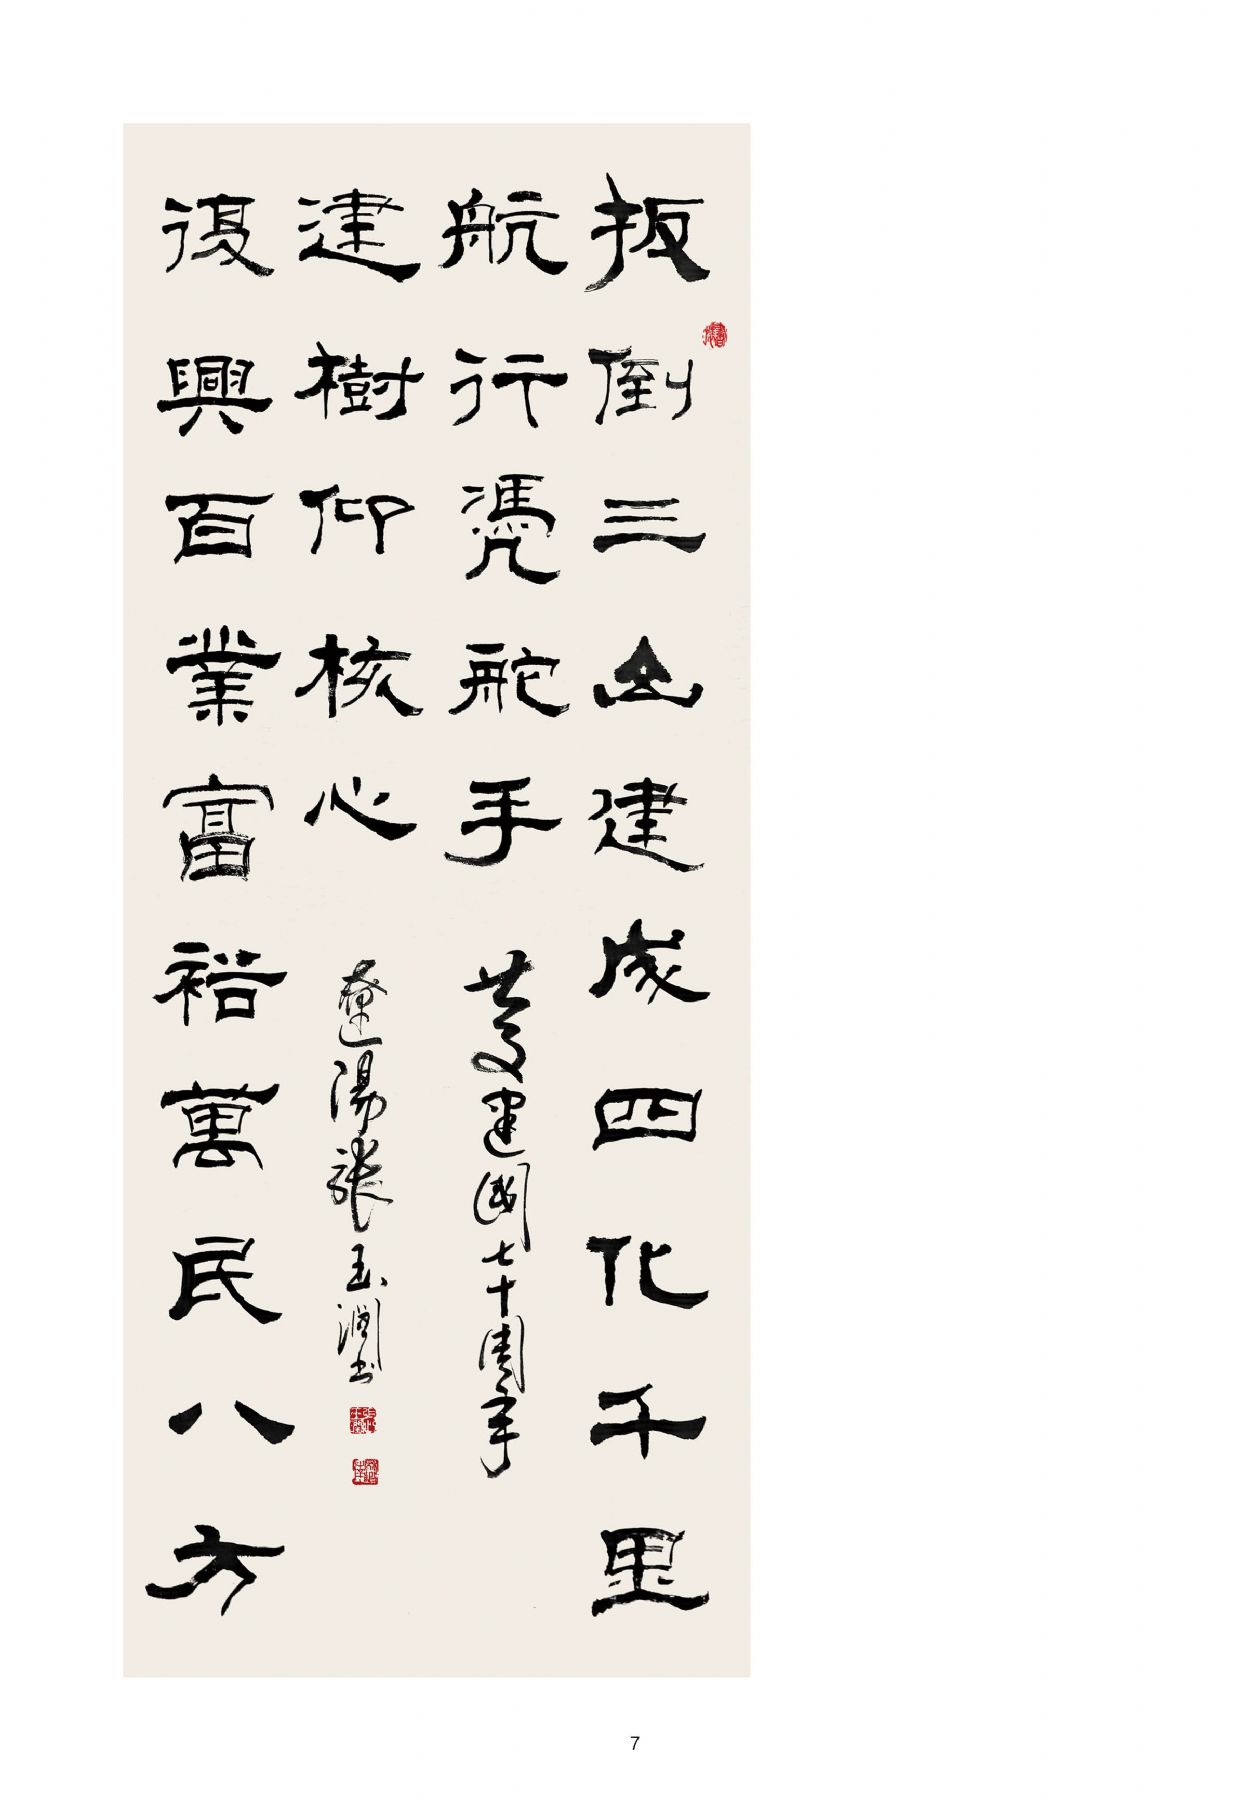 扳倒三山建成四化千里
航行憑舵手
慶建國七十周年
復興百業富裕萬民八方
建樹仰核心
遼陽張玉潤書
7